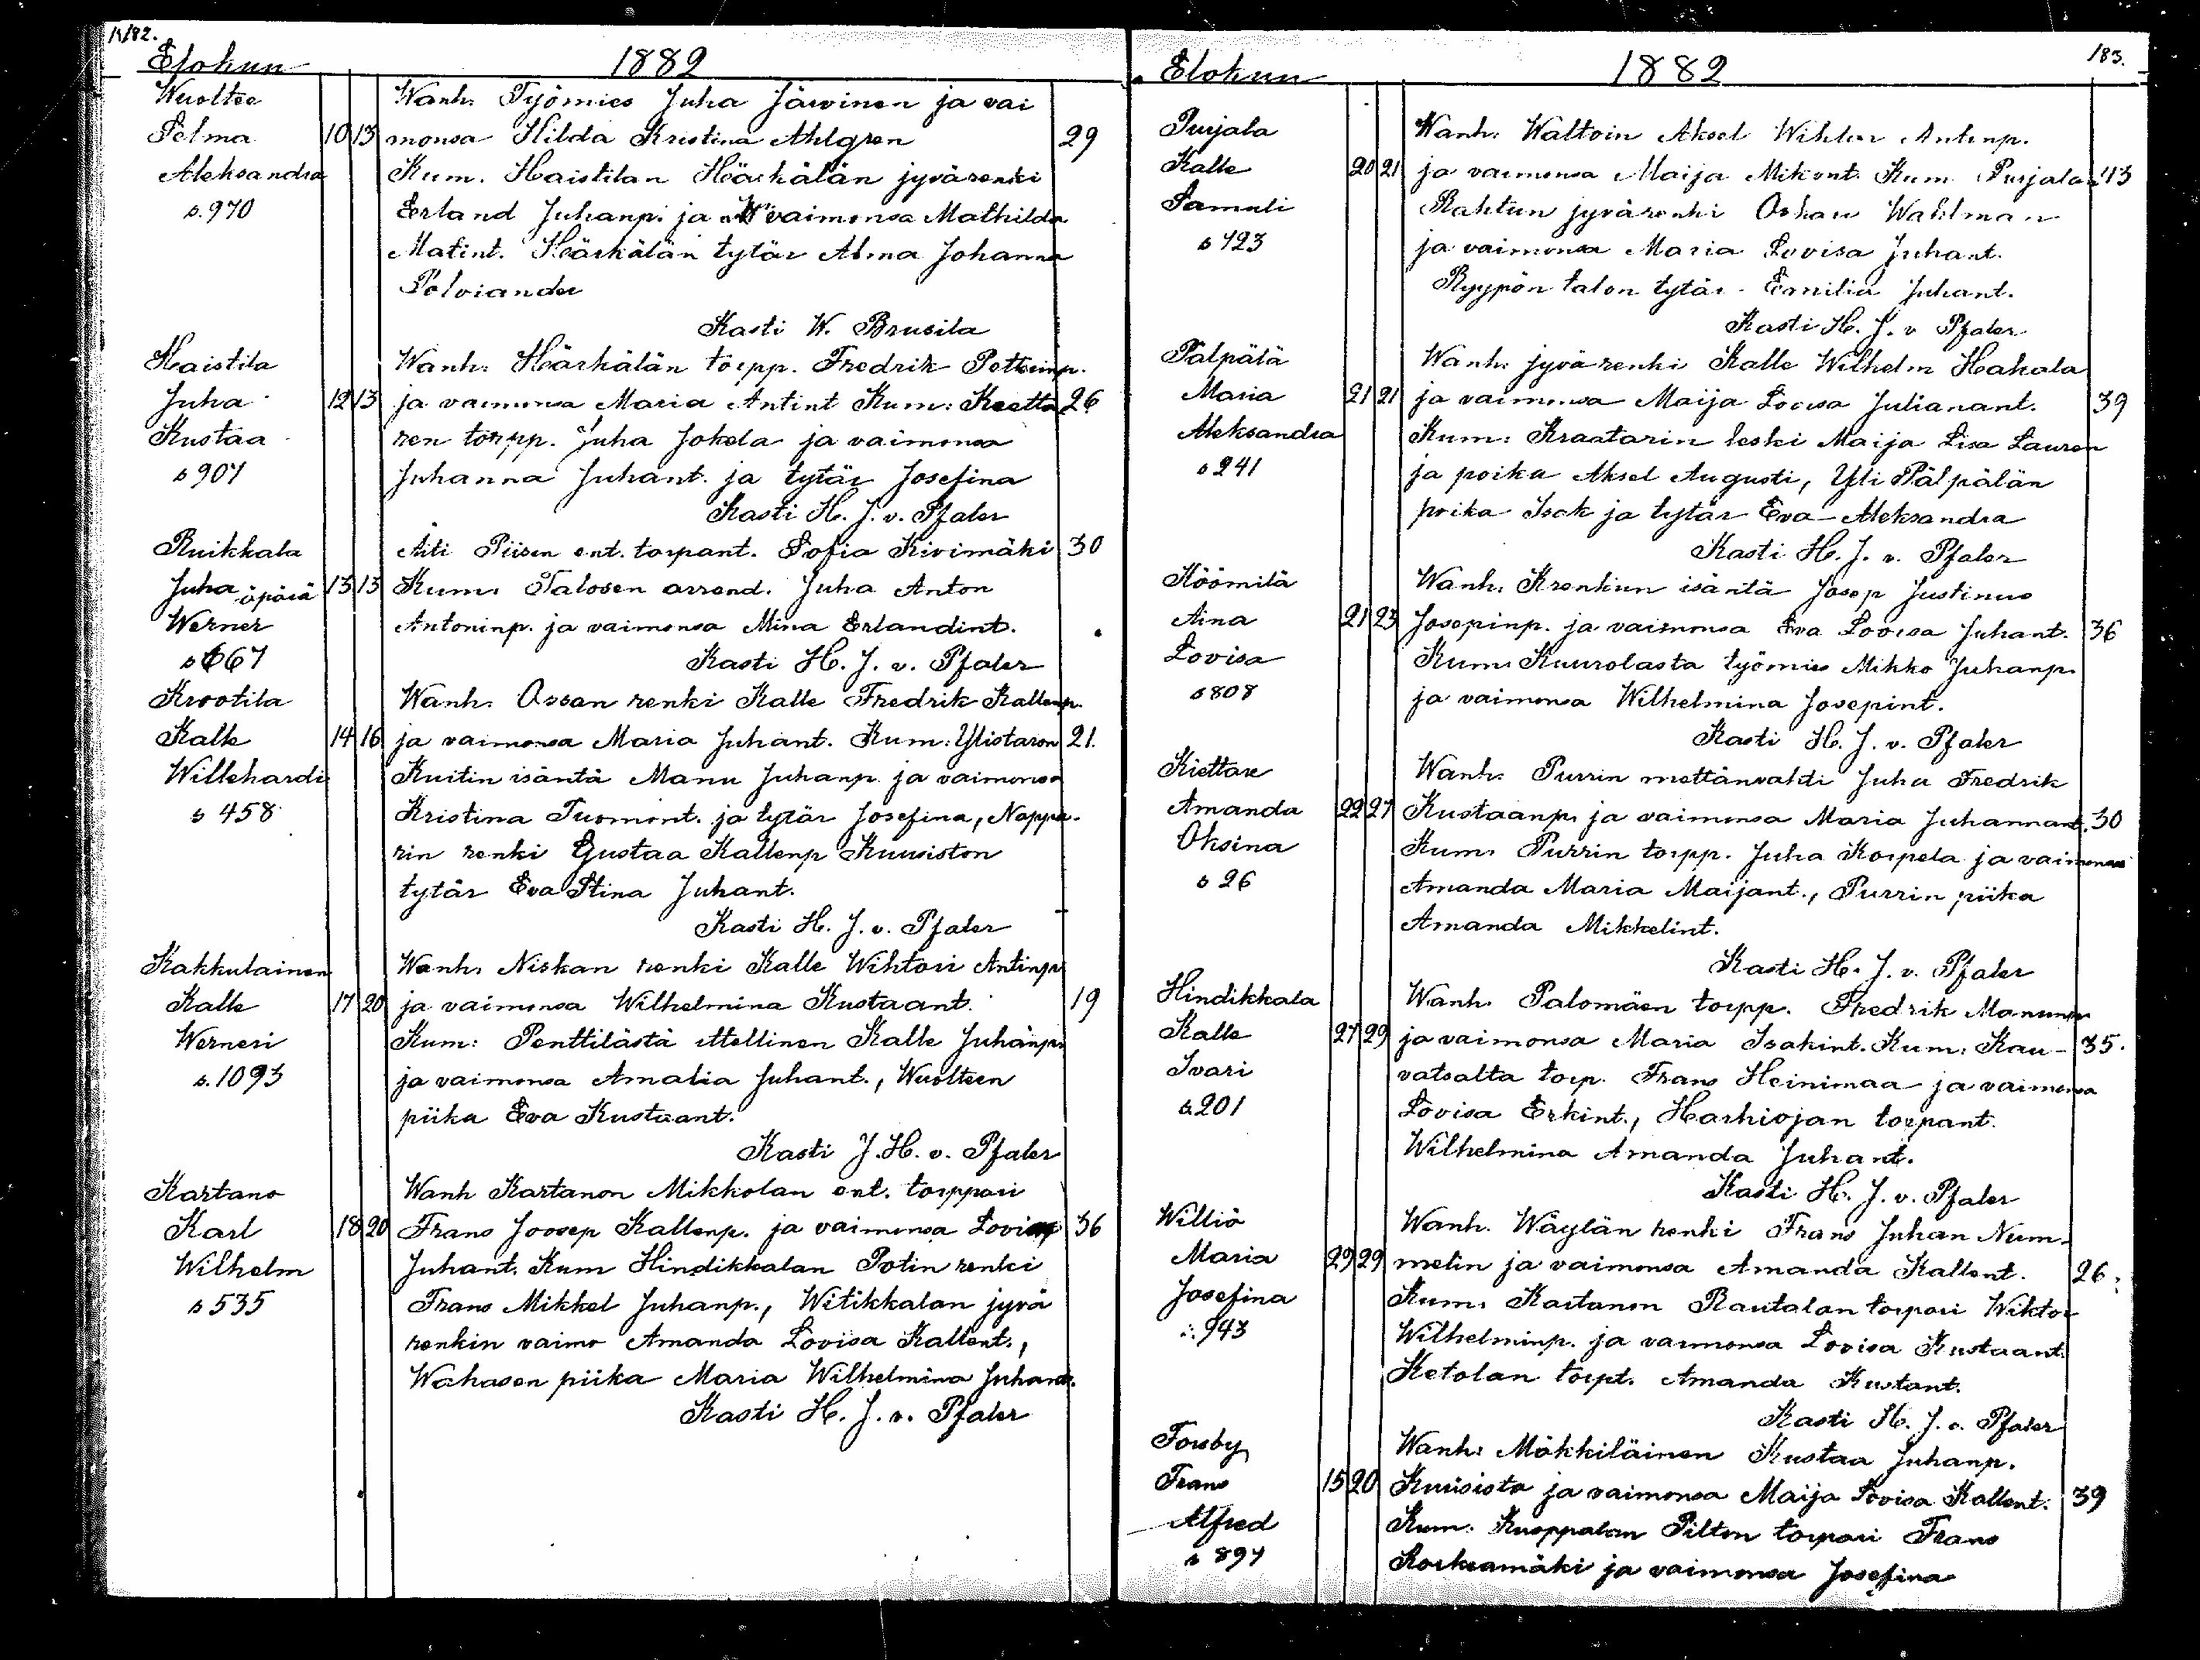 182.
Elokun 1882
Wuoltee Wanh. Työmies Juha Järvinen ja vai
Selma 10 13 monsa Hilda Kristina Ahlgren 29
Aleksandra Kum. Haistilan Härkälän jyvärenki
s. 970 Erland Juhanp. ja vaimonsa Mathilda
Matint. Härkälän tytär Alma Johanna
Polviander
Kasti W. Brusila
Haistila Wanh. Härkälän torpp. Fredrik Petterinp.
Juha 12 13 ja vaimonsa Maria Antint Kum: Kietta 26
Kustaa ren torpp. Juha Jokela ja vaimonsa
s 907 Juhanna Juhant. ja tytär Josefina
Kasti H. J. v. Pfaler
Ruikkala Äiti Piisen ent. torpant. Sofia Kivimäki 30
Juha äpärä 13 13 Kum. Talosen arrend. Juha Anton
Werner Antoninp. ja vaimonsa Mina Erlandint.
s 667 Kasti H. J. v. Pfaler
Krootila Wanh. Ossan renki Kalle Fredrik Kallenp.
Kalle 14 16 ja vaimonsa Maria Juhant. Kum: Ylistaron 21.
Willehardi Kuitin isäntä Manu Juhanp. ja vaimonsa
s 458 Kristina Tuomont. ja tytär Josefina, Nappa-
rin renki Gustaa Kallenp Kuusiston
tytär Eva Stina Juhant.
Kasti H. J. v. Pfaler
Kakkulainen Wanh. Niskan renki Kalle Wihtori Antinp
Kalle 17 20 ja vaimonsa Wilhelmina Kustaant. 19
Werneri Kum: Penttilästä ittellinen Kalle Juhanp.
s. 1093 ja vaimonsa Amalia Juhant., Wuolteen
piika Eva Kustaant.
Kasti J. H. v. Pfaler
Kartano Wanh Kartanon Mikkolan ent. torppari
Karl 18 20 Frans Joosep Kallenp. ja vaimonsa Lovisa 36
Wilhelm Juhant. Kum Hindikkalan Potin renki
s 535 Frans Mikkel Juhanp., Witikkalan jyvä
renkin vaimo Amanda Lovisa Kallent.,
Wahasen piika Maria Wilhelmina Juhant.
Kasti H. J. v. Pfaler
183.
Elokun 1882
Purjala Wanh. Waltoin Aksel Wihler Antinp.
Kalle 20 21 ja vaimonsa Maija Mikont. Kum Purjalan 43
Samuli Rahtun jyvärenki Oskar Wahlman
s 423 ja vaimonsa Maria Lovisa Juhant.
Ryypön talon tytär Emilia Juhant.
Kasti H. J. v Pfaler
Pälpälä Wanh. jyvärenki Kalle Wilhelm Hakala
Maria 21 21 ja vaimonsa Maija Lovisa Julianant. 39
Aleksandra Kum: Kraatarin leski Maija Lisa Lauren
s 241 ja poika Aksel Augusti, Yli Pälpälän
poika Isak ja tytär Eva Aleksandra
Kasti H. J. v. Pfaler
Köömilä Wanh. Krenkun isäntä Josep Justinus
Aina 21 23 Josepinp. ja vaimonsa Eva Lovisa Juhant. 36
Lovisa Kum. Kuurolasta työmies Mikko Juhanp.
s 808 ja vaimonsa Wilhelmina Josepint.
Kasti H. J. v. Pfaler
Kiettare Wanh. Purrin mettänvahti Juha Fredrik
Amanda 22 27 Kustaanp. ja vaimonsa Maria Juhannant. 30
Oksina Kum. Purrin torpp. Juha Korpela ja vaimonsa
s 26 Amanda Maria Maijant., Purrin piika
Amanda Mikkelint.
Kasti H. J. v. Pfaler
Hindikkala Wanh. Palomäen torpp. Fredrik Manunp.
Kalle 27 29 ja vaimonsa Maria Isakint. Kum. Kau- 35.
Ivari vatsalta torp. Frans Heinimaa ja vaimonsa
s. 201 Lovisa Erkint., Harhiojan torpant.
Wilhelmina Amanda Juhant.
Kasti H. J. v. Pfaler
Williö Wanh. Wäylän renki Frans Juhan Num-
Maria 29 29 melin ja vaimonsa Amanda Kallent. 26.
Josefina Kum. Kartanon Rautalan torpari Wiktor
s. 943 Wilhelminp. ja vaimonsa Lovisa Kustaant.
Ketolan torpt. Amanda Kustant.
Kasti H. J. v. Pfaler
Forsby Wanh. Mökkiläinen Kustaa Juhanp.
Frans 15 20 Kuusista ja vaimonsa Maija Lovisa Kallent. 39
Alfred Kum. Kuoppalan Pilton torpari Frans
s 897 Korkeamäki ja vaimonsa Josefina